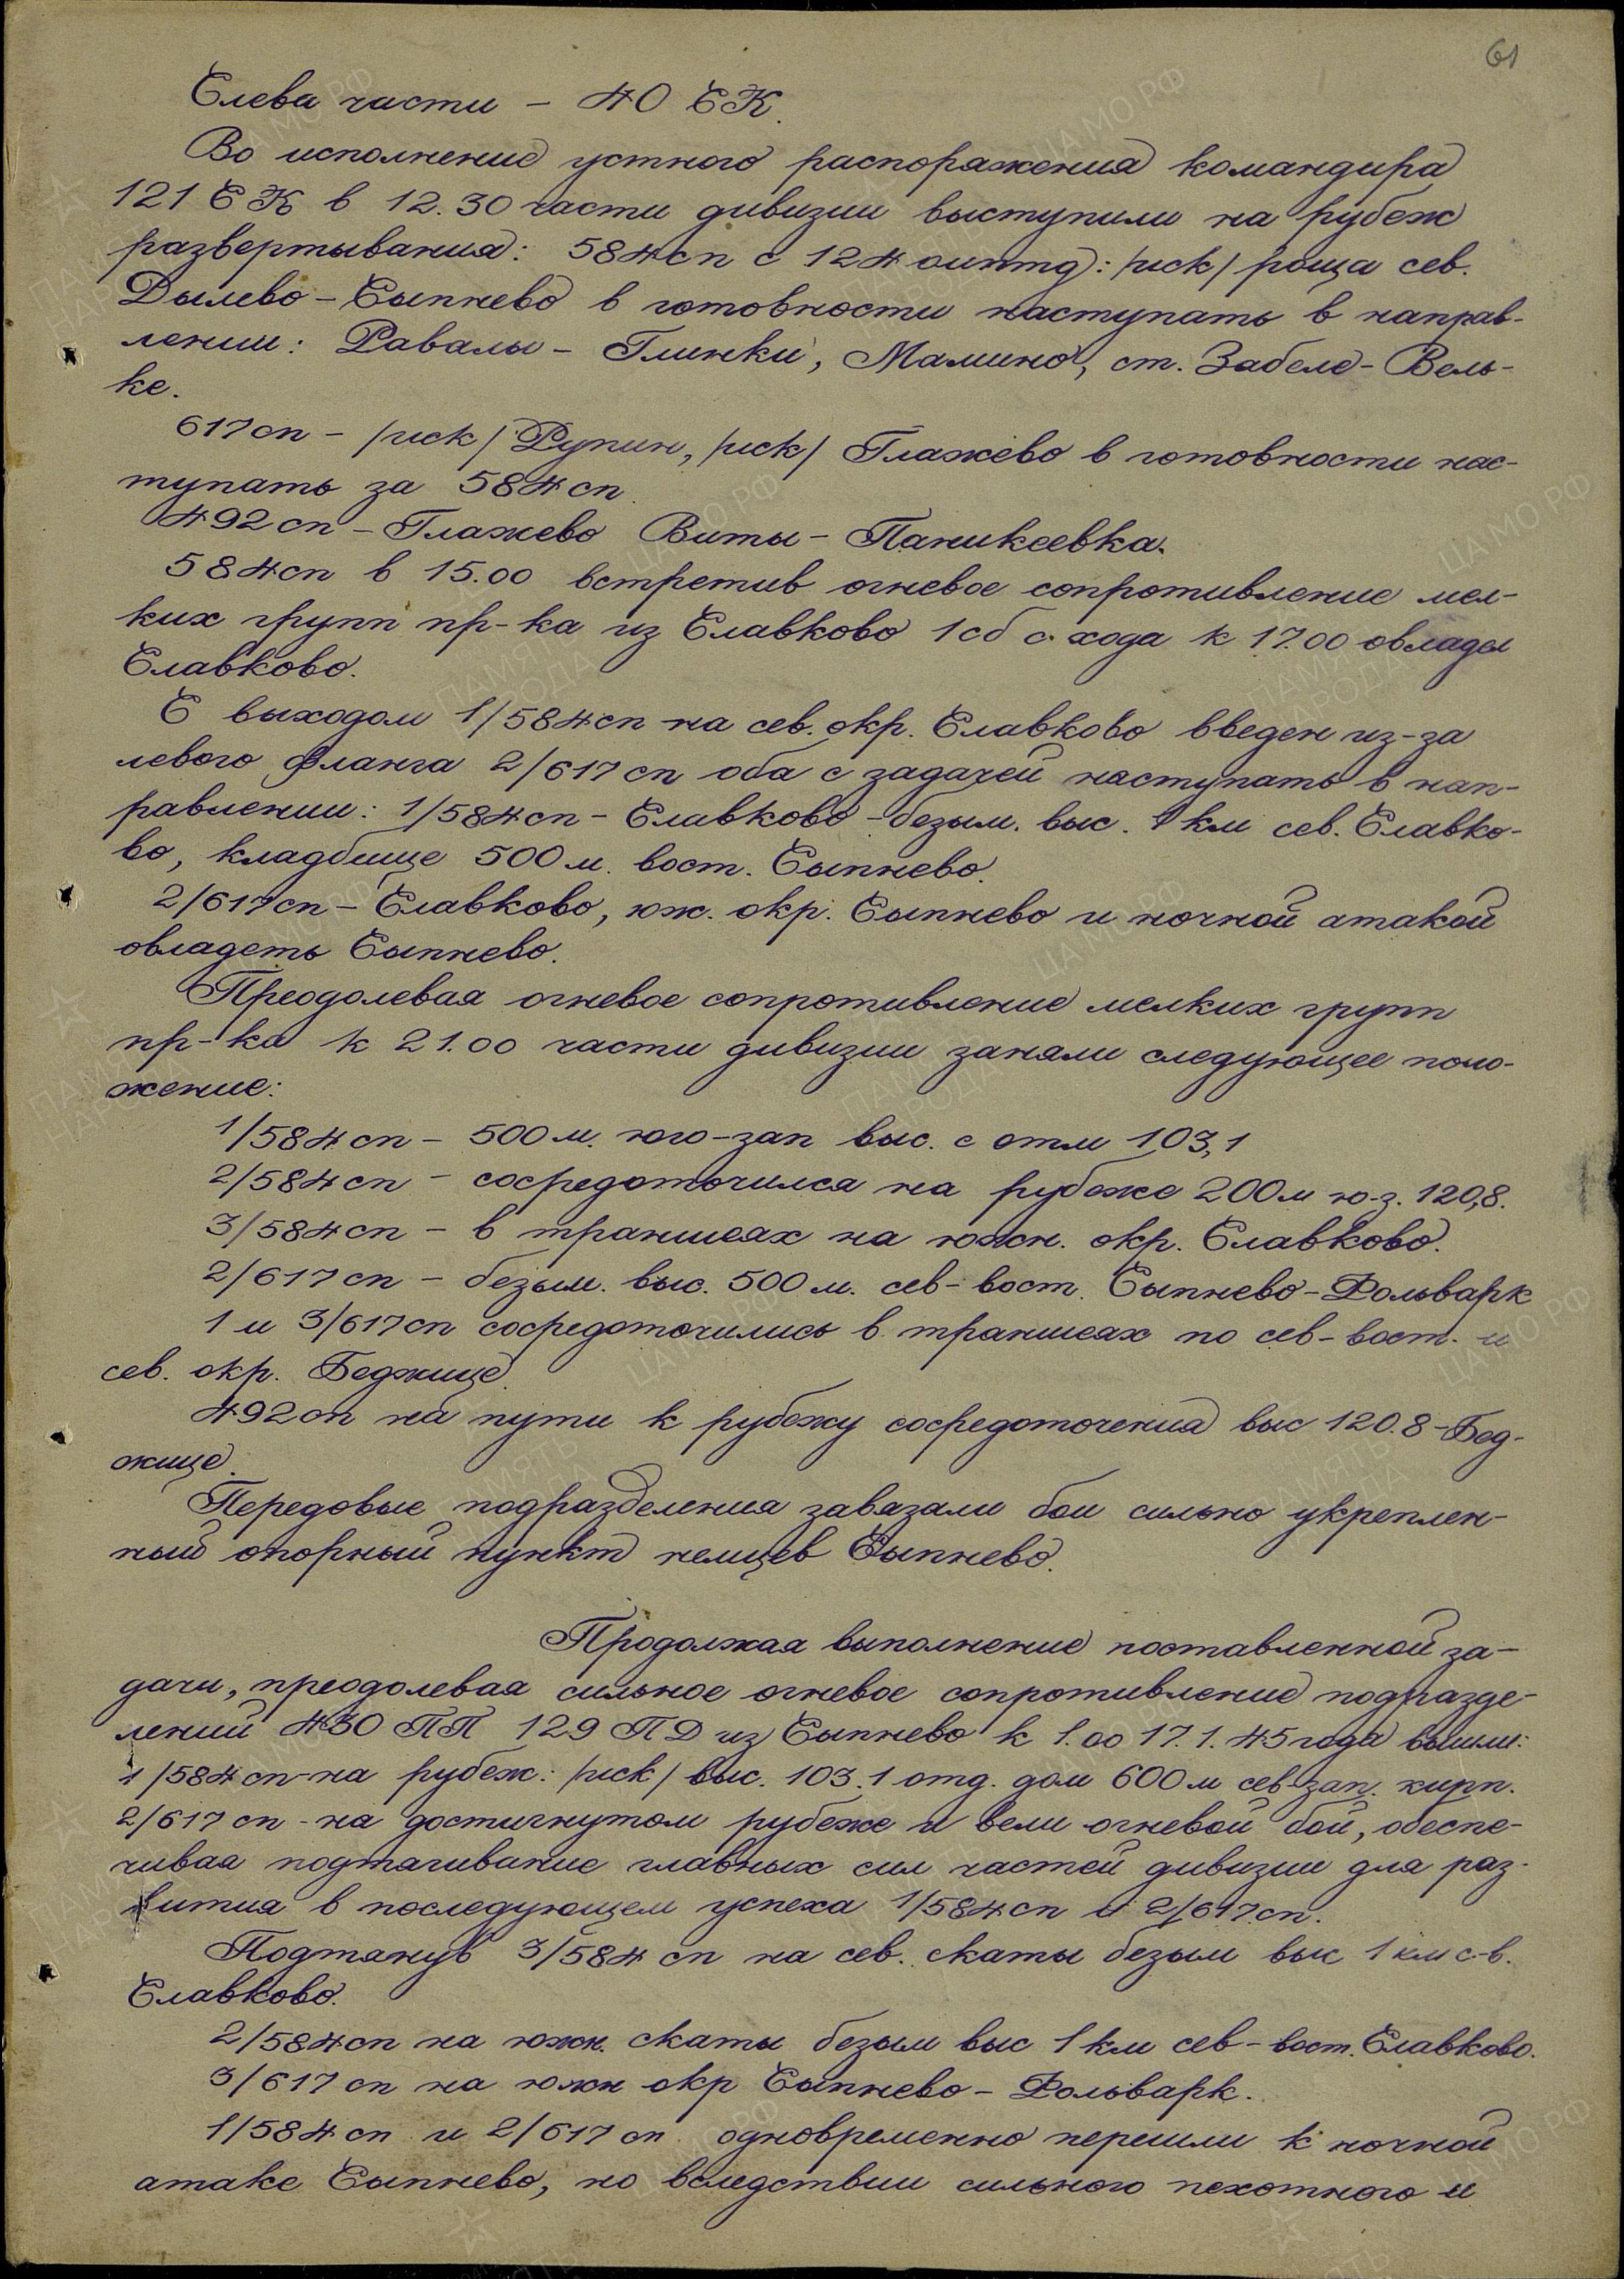 61
Слева части – 40 СК.
Во исполнение устного распоряжения командира
121 СК в 12.30 части дивизии выступили на рубеж
развертывания: 584 сп с 124 оиптд: /иск/ роща сев.
Дылево – Сыпнево в готовности наступать в направ-
лении: Равалы – Глинки, Мамино, ст. Забеле – Вель-
ке.
617 сп – /иск/ Рупин, /иск/ Глажево в готовности нас-
тупать за 584 сп.
492 сп – Глажево Виты – Паникеевка.
584 сп в 15.00 встретив огневое сопротивление мел-
ких групп пр-ка из Славково 1 сб с хода к 17.00 овладел
Славково.
С выходом 1/584 сп на сев. окр. Славково введен из-за
левого фланга 2/617 сп оба с задачей наступать в нап-
равлении: 1/584 сп – Славково – безым. выс. 1 км сев. Славко-
во, кладбище 500 м. вост. Сыпнево.
2/617 сп – Славково, юж. окр. Сыпнево и ночной атакой
овладеть Сыпнево.
Преодолевая огневое сопротивление мелких групп
пр-ка к 21.00 части дивизии заняли следующее поло-
жение:
1/584 сп – 500 м. юго-зап выс. с отм 103,1
2/584 сп – сосредоточился на рубеже 200 м ю-з. 120,8.
3/584 сп – в траншеях на южн. окр. Славково.
2/617 сп – безым. выс. 500 м. сев-вост. Сыпнево – Фольварк
1 и 3/617 сп сосредоточились в траншеях по сев-вост. и
сев. окр. Беджице.
492 сп на пути к рубежу сосредоточения выс 120.8 – Бед-
жице.
Передовые подразделения завязали бои сильно укреплен-
ный опорный пункт немцев Сыпнево.
Продолжая выполнение поставленной за-
дачи, преодолевая сильное огневое сопротивление подразде-
лений 430 ПП 129 ПД из Сыпнево к 1.00 17.1.45 года вышли:
1/584 сп – на рубеж: /иск/ выс. 103.1 отд. дом 600 м сев-зап. кирп.
2/617 сп – на достигнутом рубеже и вели огневой бой, обеспе-
чивая подтягивание главных сил частей дивизии для раз-
вития в последующем успеха 1/584 сп и 2/617 сп.
Подтянув 3/584 сп на сев. скаты безым выс 1 км с-в.
Славково.
2/584 сп на южн. скаты безым выс 1 км сев-вост. Славково.
3/617 сп на южн окр Сыпнево – Фольварк.
1/584 сп и 2/617 сп одновременно перешли к ночной
атаке Сыпнево, но вследствии сильного пехотного и